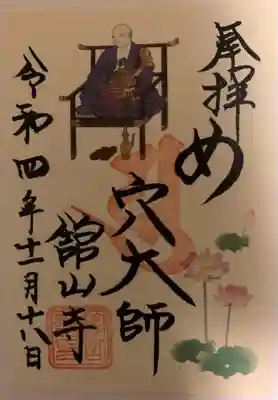 奉拝
め
穴大師
舘山寺
令和四年十二月十八日